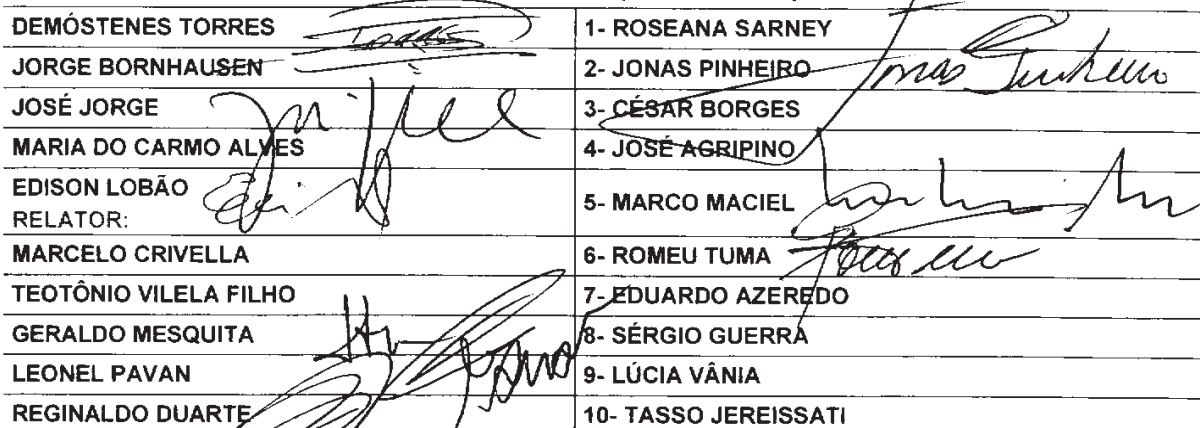 DEMÓSTENES TORRES Torres 1- ROSEANA SARNEY
JORGE BORNHAUSEN 2- JONAS PINHEIRO Jonas Pinheiro
JOSÉ JORGE 3- CÉSAR BORGES
MARIA DO CARMO ALVES 4- JOSÉ AGRIPINO
EDISON LOBÃO
RELATOR: 5- MARCO MACIEL
MARCELO CRIVELLA 6- ROMEU TUMA
TEOTÔNIO VILELA FILHO 7- EDUARDO AZEREDO
GERALDO MESQUITA 8- SÉRGIO GUERRA
LEONEL PAVAN 9- LÚCIA VÂNIA
REGINALDO DUARTE 10- TASSO JEREISSATI